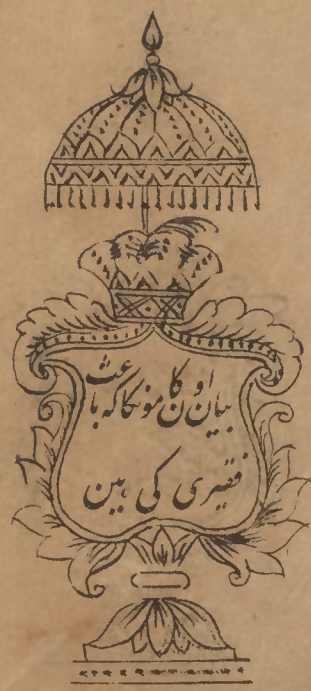 بیان اون کامونکا کہ باعث
فقیری کی ہین